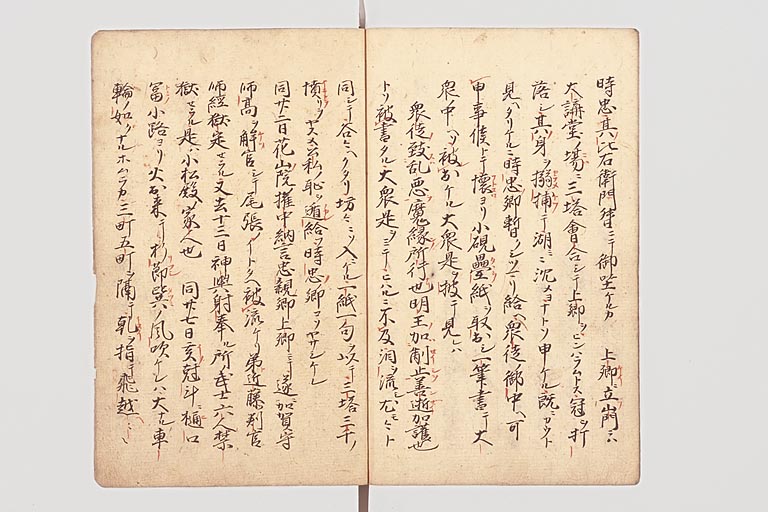 時忠其比右衛門督ニテ御坐ケルカ 上卿ニ立
大講堂ノ場ニ三塔會合シテ上卿ヲヒシハラムトス冠ヲ打
落シ其ハ身ヲ搦捕テ湖ニ沈メヨナトソ申ケル既ニカウト
見ヘタリケルニ時忠卿暫クシツマリ給ヘ衆徒ノ御中ヘ可
申事候トテ懐ヨリ小硯疊紙ヲ取出シ一筆書テ大
衆中ヘソ被出ケル大衆是ヲ披テ見レハ
衆徒致乱悪魔縁所行也明王加制止善逝加護也
トソ被書タル大衆是ヲミテヒハルニ不及泪ヲ流シ尤々々ト
同シテ谷々ヘクタリ坊々ニソ入ニケル一紙一句ヲ以テ三塔三千ノ
憤リヲヤスメ公私ノ恥ヲ遁給フ時忠卿コソヤサシケレ
同廿二日花山院権中納言忠親卿上卿ニテ遂ニ加賀守
師髙ヲ解官シテ尾張ノイトタヘ被流ケリ弟近藤判官
師經獄定セラル又去十三日神輿射奉ル所武士六人禁
獄セラル是ハ小松殿ノ家人也 同廿七日亥冠斗ニ樋口
冨小路ヨリ火出来テ折節巽ノ風吹ケレハ大ナル車
輪ノ如クナルホムラカ三町五町ヲ隔テ乾ヲ指テ飛越々々